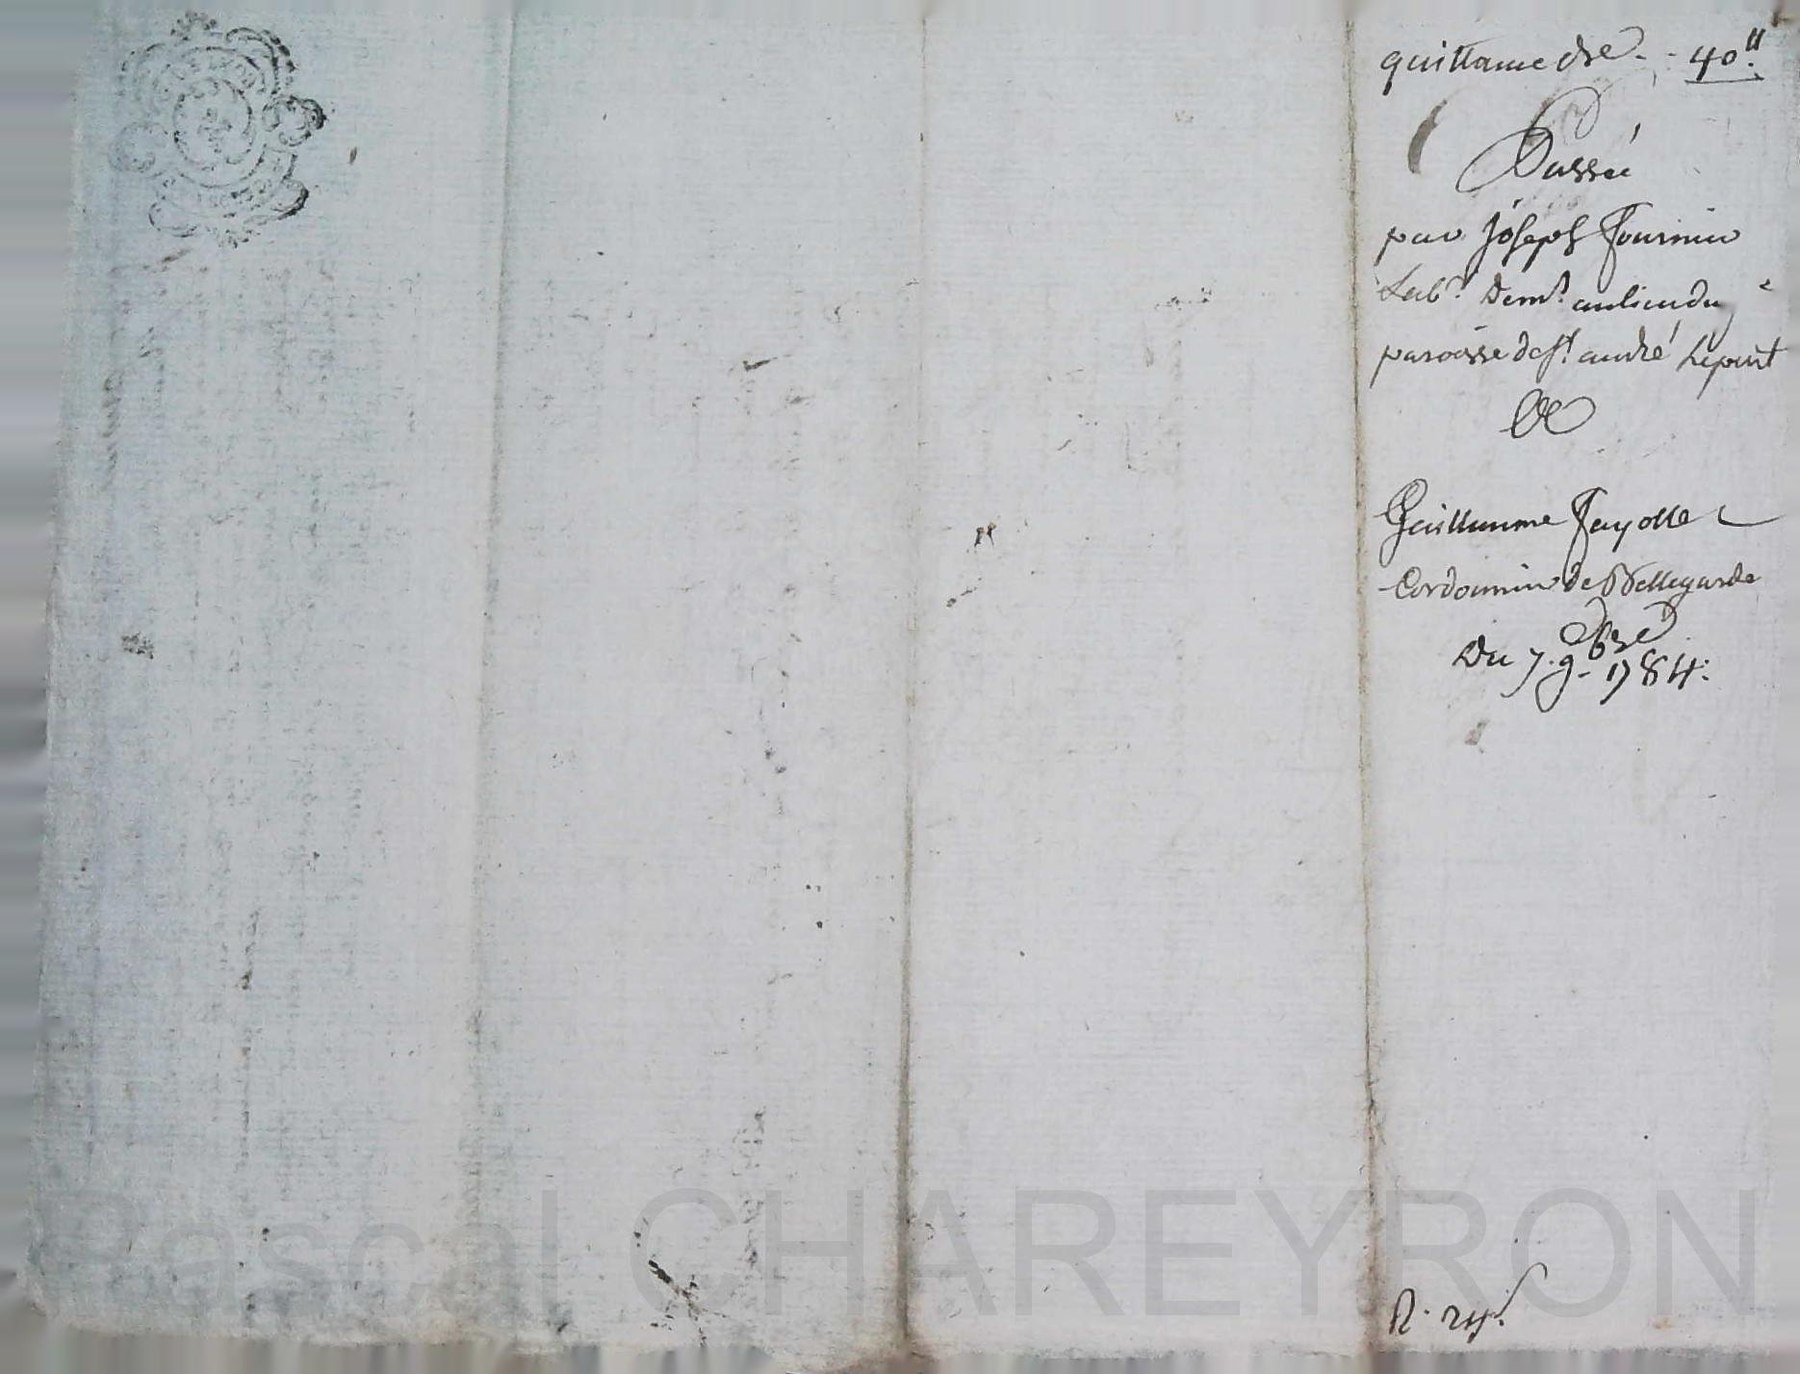 quittance de - 40.tt
Passée
par Joseph Fournier
Lab.r Dem.t au lieu du
paroisse de St. andré Lepuit
A
Guillaume Fayolle
Cordonnier de Bellegarde
Du 7. 9bre 1784.
R. 24s
Pascal CHAREYRON